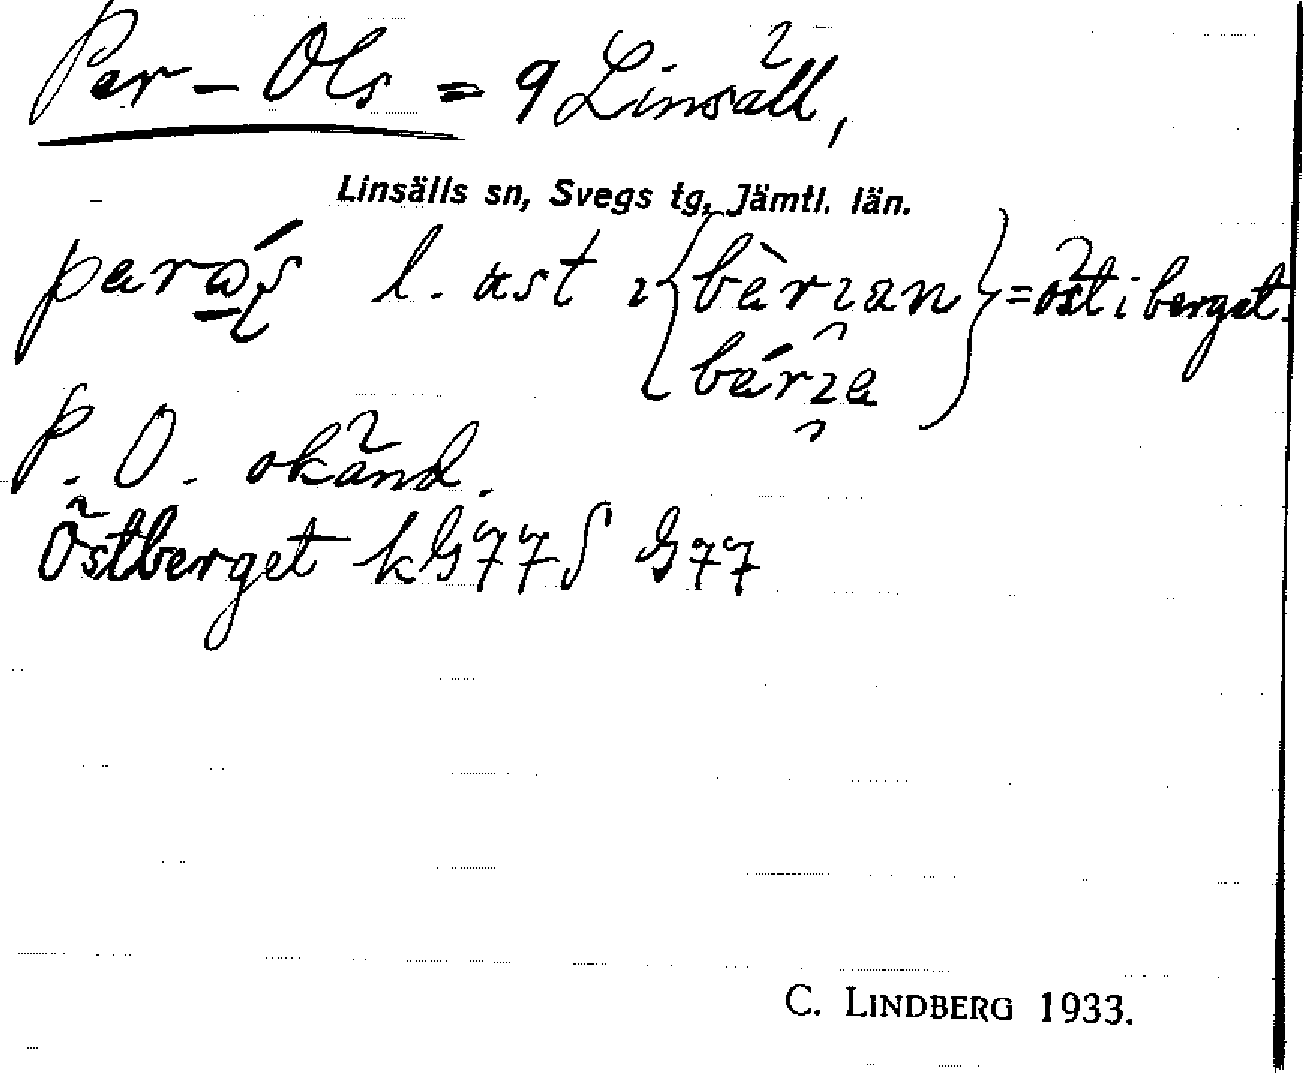 Per-Ols = 9 Linsäll,
Linsälls sn, Svegs tg, Jämtl. län.
l. ast ı { bèrıan } = öst i berget.
bérıa
P. O. okänd.
Östberget kG77 S G77
C. LINDBERG 1933.